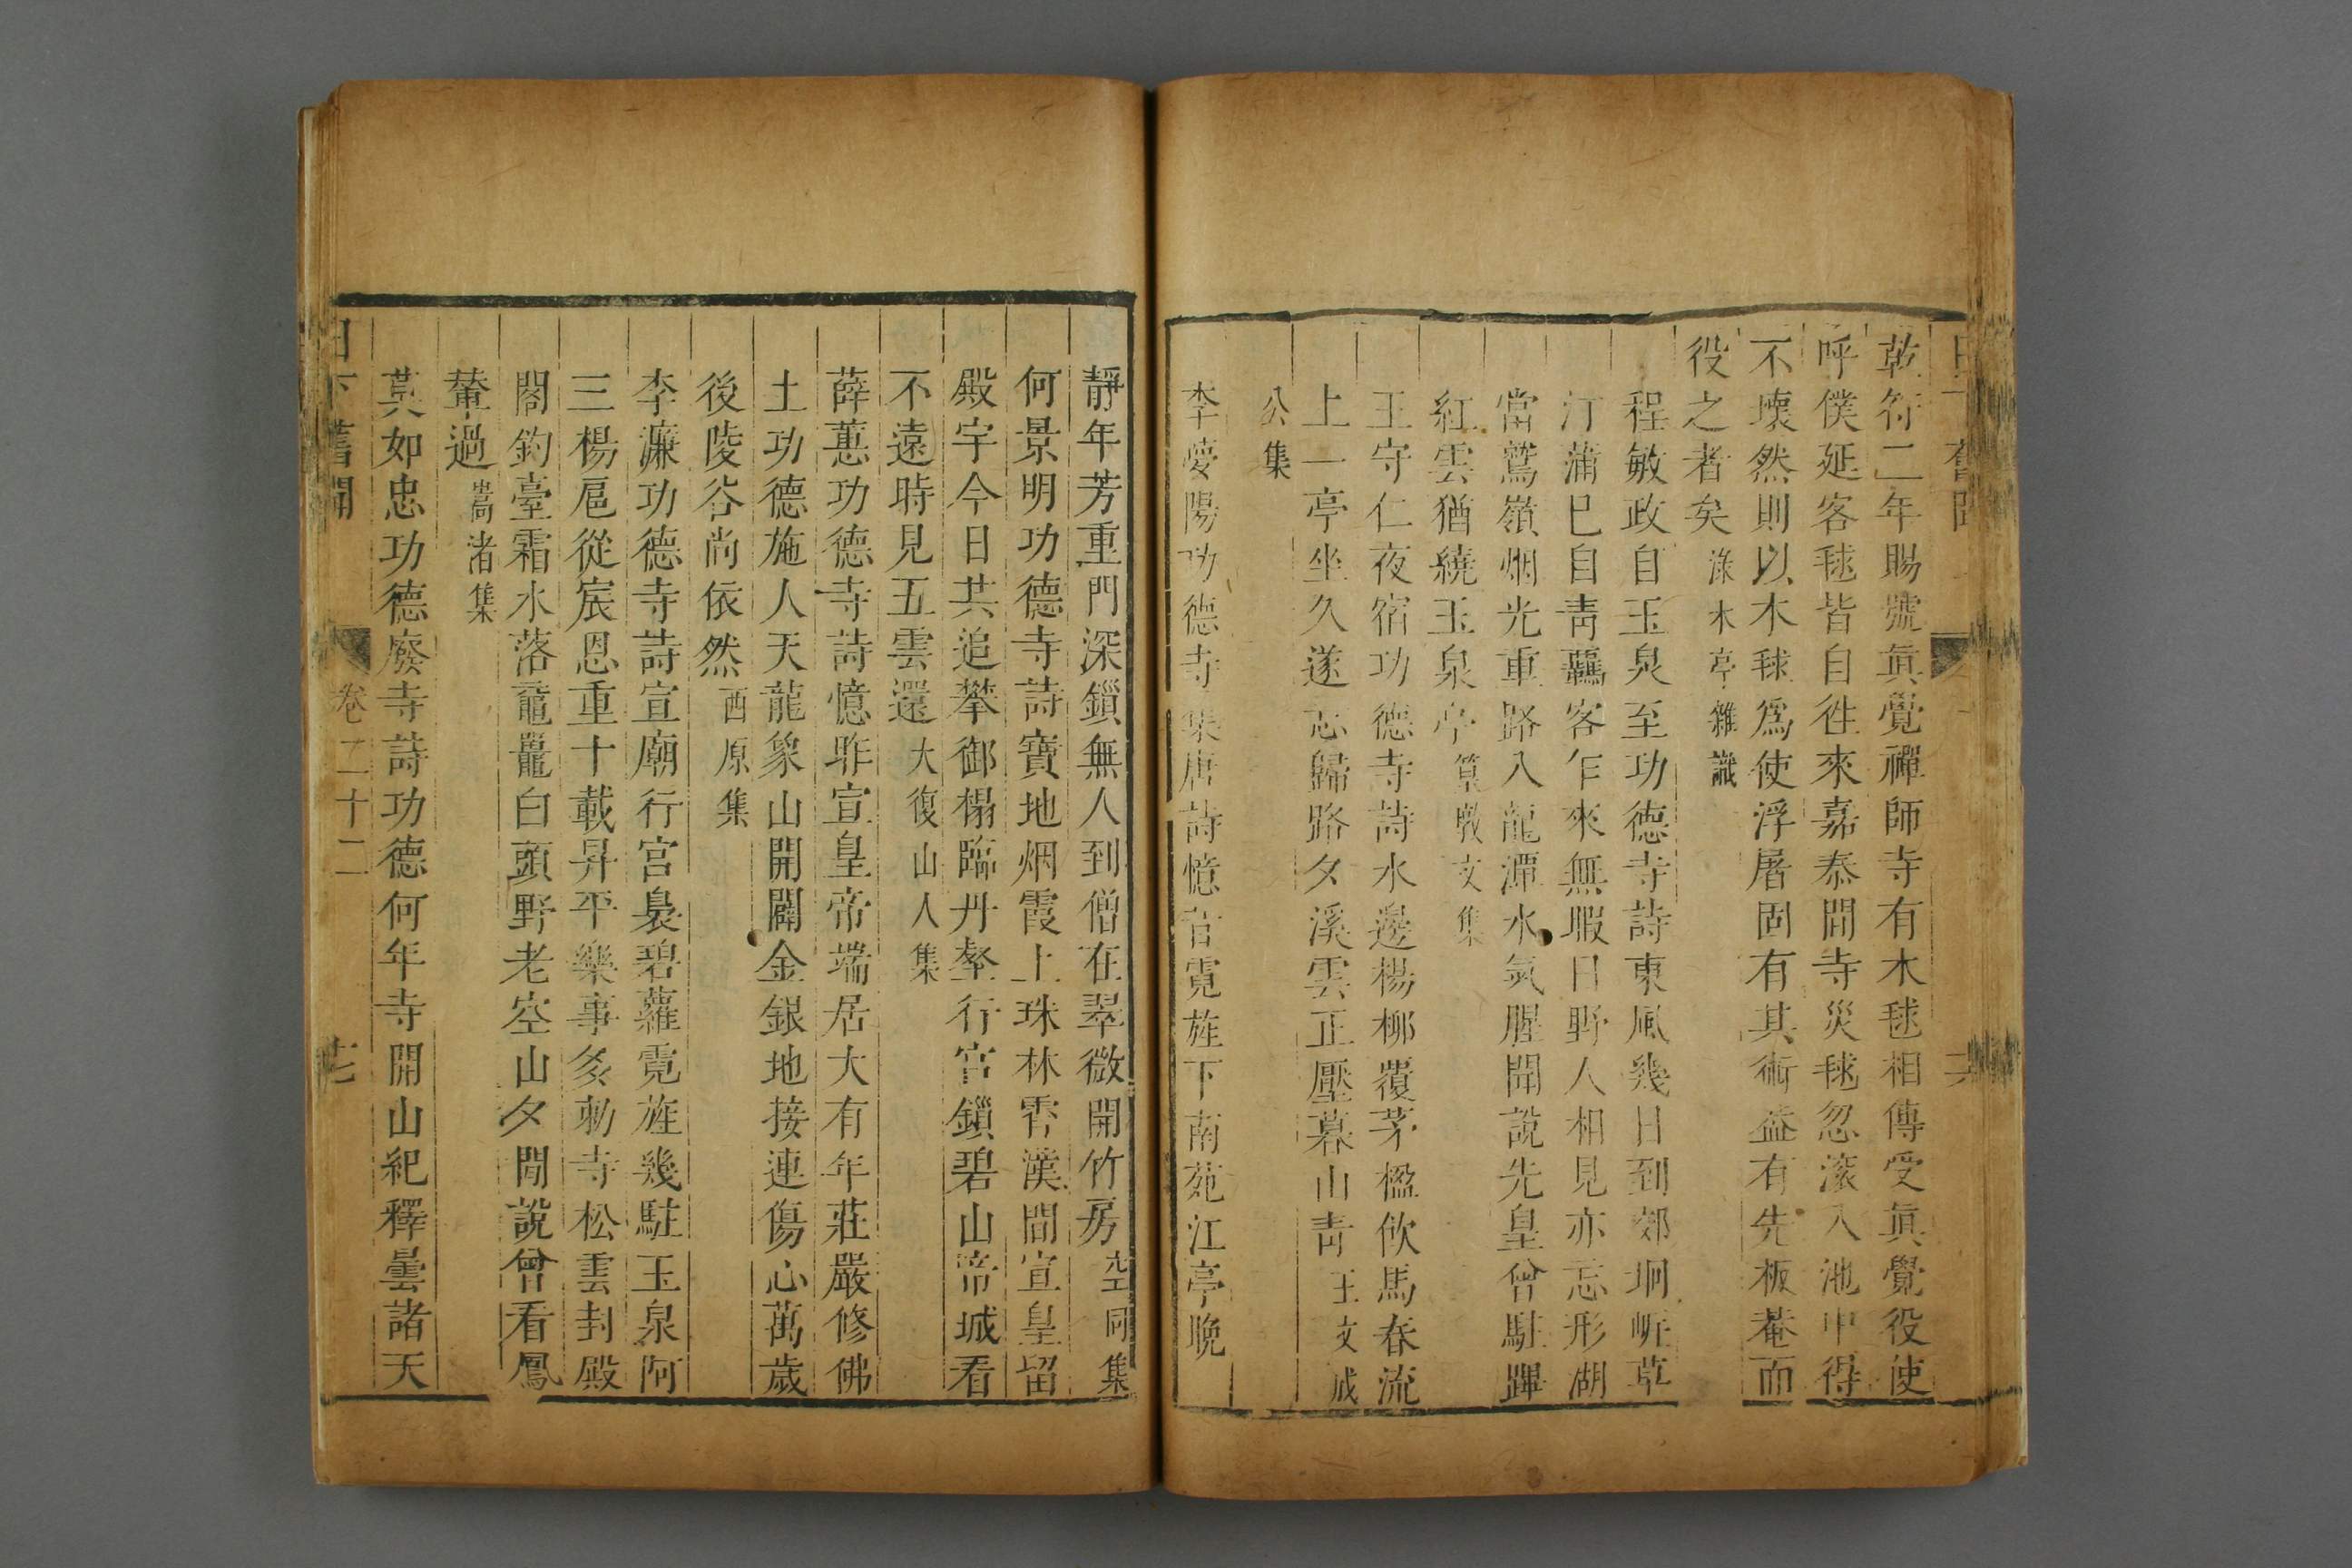 乾符二年賜號眞覺禪師寺有木毬相傳受眞覺役使
呼僕延客毬皆自徃來嘉泰間寺災毬忽滚入池中得
不壞然則以木毬爲使浮屠固有其術益有先板菴而
役之者矣淥木亭雜識
程敏政自玉泉至功德寺詩東風幾日到郊坰岍草
汀蒲巳自靑驫客乍來無暇日野人相見亦忘形湖
當鷲嶺烟光重路入龍潭水氣腥聞說先皇曾駐蹕
紅雲猶繞玉泉亭篁墩文集
王守仁夜宿功德寺詩水邊楊柳覆茅楹飲馬春流
上一亭坐久遂忘歸路夕溪雲正壓暮山靑王文成
公集
李夢陽功德寺集唐詩憶昔霓旌下南苑江亭晚
靜年芳重門深鎖無人到僧在翠微開竹房空同集
何景明功德寺詩寶地烟霞上珠林霄漢間宣皇留
殿宇今日共追攀御榻臨丹壑行宮鎖碧山帝城看
不遠時見五雲還大復山人集
薛蕙功德寺詩憶昨宣皇帝端居大有年莊嚴修佛
土功德施人天龍象山開闢金銀地接連傷心萬歲
後陵谷尚依然西原集
李濂功德寺詩宣廟行宮裊碧蘿霓旌幾駐玉泉阿
三楊扈從宸恩重十載昇平樂事多勅寺松雲封殿
閣釣臺霜水落黿鼉白頭野老空山夕閒說曾看鳳
輦過嵩渚集
莫如忠功德廢寺詩功德何年寺開山紀釋曇諸天
日下舊聞
卷二十二
十七